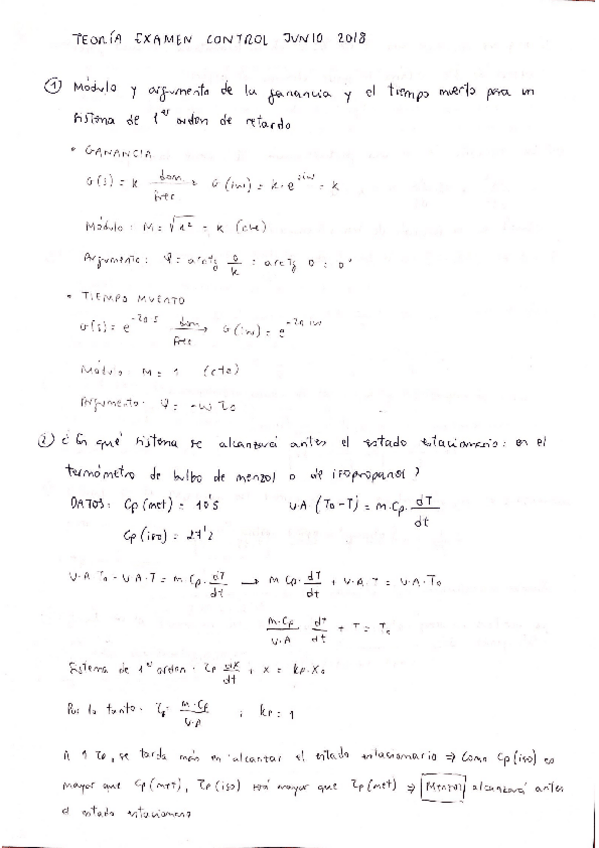 TEORÍA EXAMEN CONTROL JUNIO 2018
① Módulo y argumento de la ganancia y el tiempo muerto para un
sistema de 1er orden de retardo
• GANANCIA
G(s) = k dom → frec G(iw) = k·e^{0iw} = k
Módulo: M = √k² = k (cte)
Argumento: φ = arctg 0/k = arctg 0 = 0°
• TIEMPO MUERTO
G(s) = e^{-τ0 s} dom → frec G(iw) = e^{-τ0 iw}
Módulo M = 1 (cte)
Argumento: φ = -w τ0
② ¿En qué sistema se alcanzará antes el estado estacionario: en el
termómetro de bulbo de menzol o de isopropanol?
DATOS: Cp (met) = 10'5 U·A (To-T) = m·Cp· dT/dt
Cp (iso) = 27'2
U·A·To - U·A·T = m Cp· dT/dt → m Cp· dT/dt + U·A·T = U·A·To
m·Cp/U·A · dT/dt + T = To
Sistema de 1er orden: τp dX/dt + X = kp·Xo
Por lo tanto: τp = m·Cp/U·A ; kp = 1
A ↑ τp, se tarda más en alcanzar el estado estacionario ⇒ Como Cp (iso) es
mayor que Cp (met), τp (iso) será mayor que τp (met) ⇒ Menzol alcanzará antes
el estado estacionario